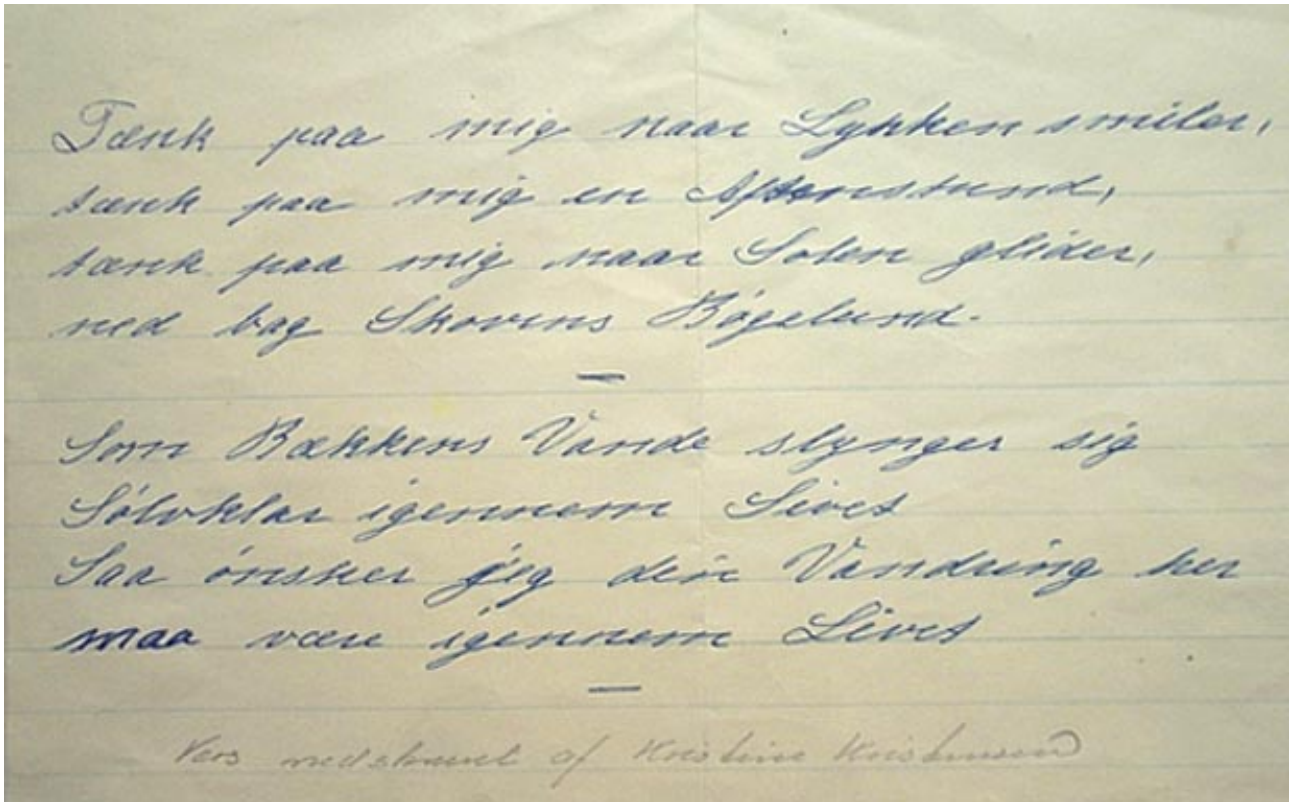 Tænk paa mig naar Lykken smiler,
tænk paa mig en Aftenstund,
tænk paa mig naar Solen glider,
ned bag Skovens Bøgelund.
Som Bækkens Vande slynger sig
Sølvklar igennem Sivet
Saa ønsker jeg din Vandring her
maa være igennem Livet
Vers nedskrevet af Kristine Kristensen